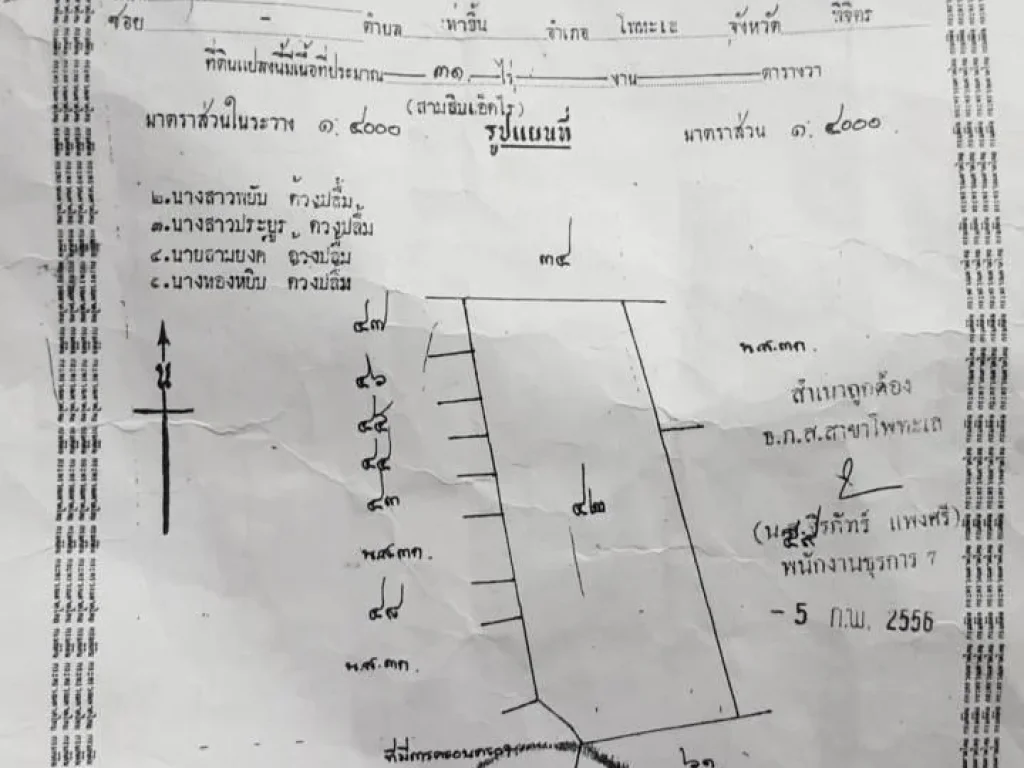 ซอย - ตำบล ท่าขึ้น อำเภอ โพทะเล จังหวัด พิจิตร
ที่ดินแปลงนี้มีเนื้อที่ประมาณ ๓๑ ไร่ งาน ตารางวา
(สามสิบเอ็ดไร่)
มาตราส่วนในระวาง ๑: ๔๐๐๐ รูปแผนที่ มาตราส่วน ๑: ๔๐๐๐
๒.นางสาวพยับ ด้วงปลื้ม
๓.นางสาวประยูร ด้วงปลื้ม
๔.นายสามยงค์ ด้วงปลื้ม
๕.นางทองหยิบ ด้วงปลื้ม
๓๔
๔๗
น
น.ส.๓ก.
๔๖
สำเนาถูกต้อง
๔๕
ธ.ก.ส.สาขาโพทะเล
๔๔
๔๓
๔๒
แพงศรี)
น.ส.๓ก.
พนักงานธุรการ 7
๔๘
- 5 ก.พ. 2556
น.ส.๓ก.
ที่มีการครอบครอง
๖๑